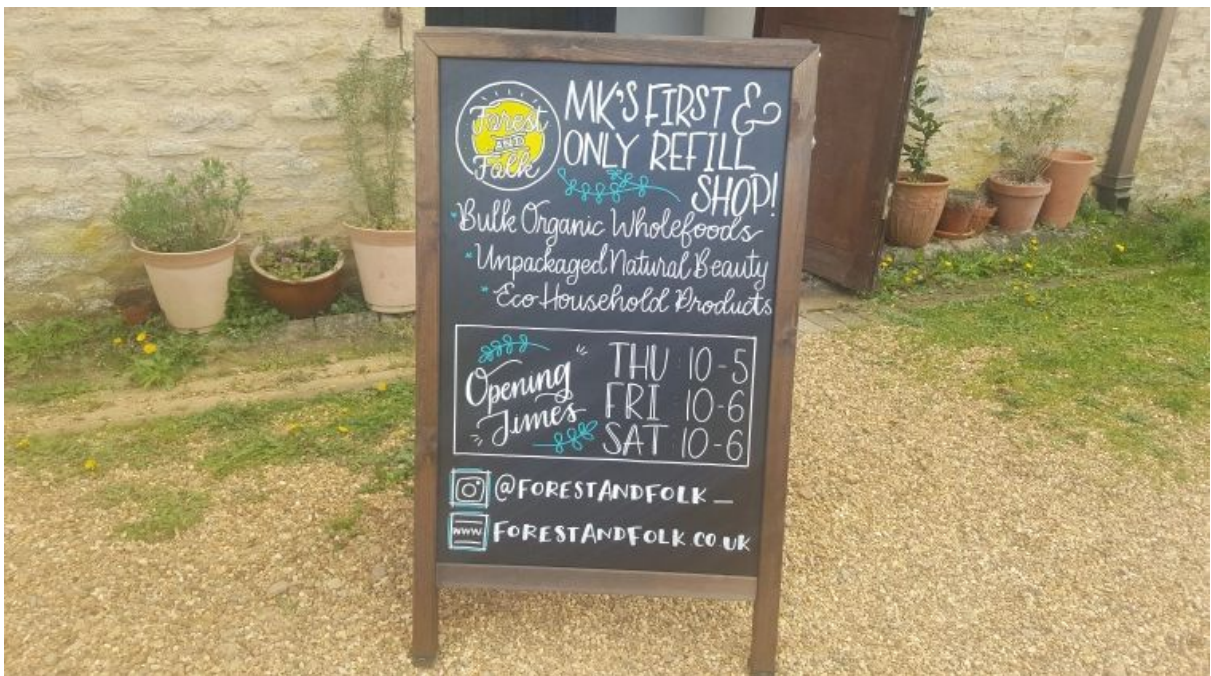 Forest
AND
Folk
MK'S FIRST &
ONLY REFILL
SHOP!
*Bulk Organic Wholefoods
*Unpackaged Natural Beauty
*Eco Household Products
Opening
Times
THU 10-5
FRI 10-6
SAT 10-6
@FORESTANDFOLK_
www FORESTANDFOLK.CO.UK